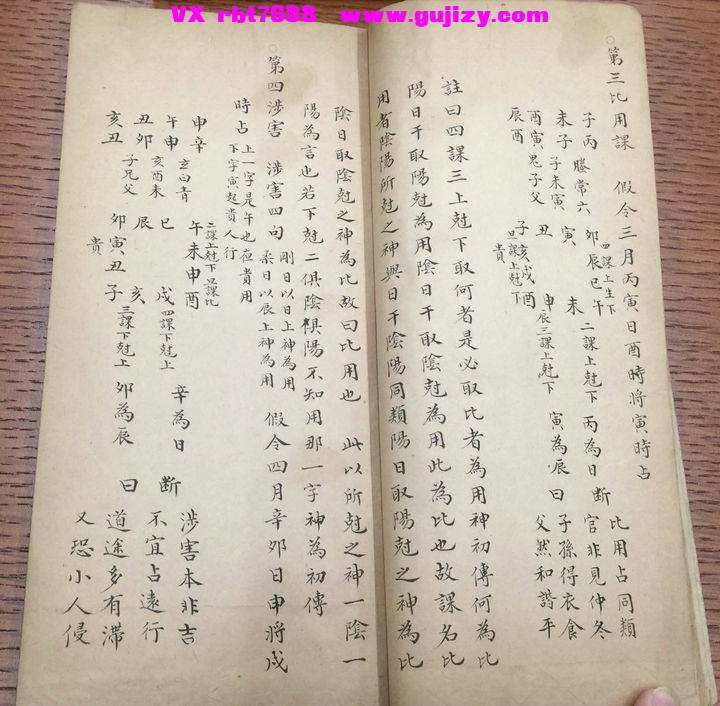 VX rbt7988 www.gujizy.com
○第三比用課 假令三月丙寅日酉時將寅時占
子丙 螣常六
未子 子未寅
酉寅 鬼子父
辰酉
四課上生下
卯辰巳午
寅 未
二課上尅下
丑 申
辰三課上尅下
子亥戌酉
旦課上尅下
貴
丙為日
寅為辰
断曰
比用占同類
官非見仲冬
子孫得衣食
父然和諧平
註曰四課三上尅下取何者是必取比者為用神初傳何為比
陽日干取陽尅為用陰日干取陰尅為用此為比也故課名比
用者陰陽所尅之神與日干陰陽同類陽日取陽尅之神為比
陰日取陰尅之神為比故曰比用也 此以所尅之神一陰一
陽為言也若下尅二俱陰俱陽不知用那一字神為初傳
○第四涉害 涉害四句
剛日以日上神為用
柔日以辰上神為用
假令四月辛卯日申將戌
時占
上一字是午也夜貴用
下字寅起貴人行
申辛
午申 玄白青
丑卯 亥酉未
亥丑 子兄父
二課上尅下旦課比
午未申酉
巳 戌
四課下尅上
辰 亥
卯寅丑子
三課下尅上
貴
辛為日
卯為辰
断曰
涉害本非吉
不宜占遠行
道途多有滞
又恐小人侵